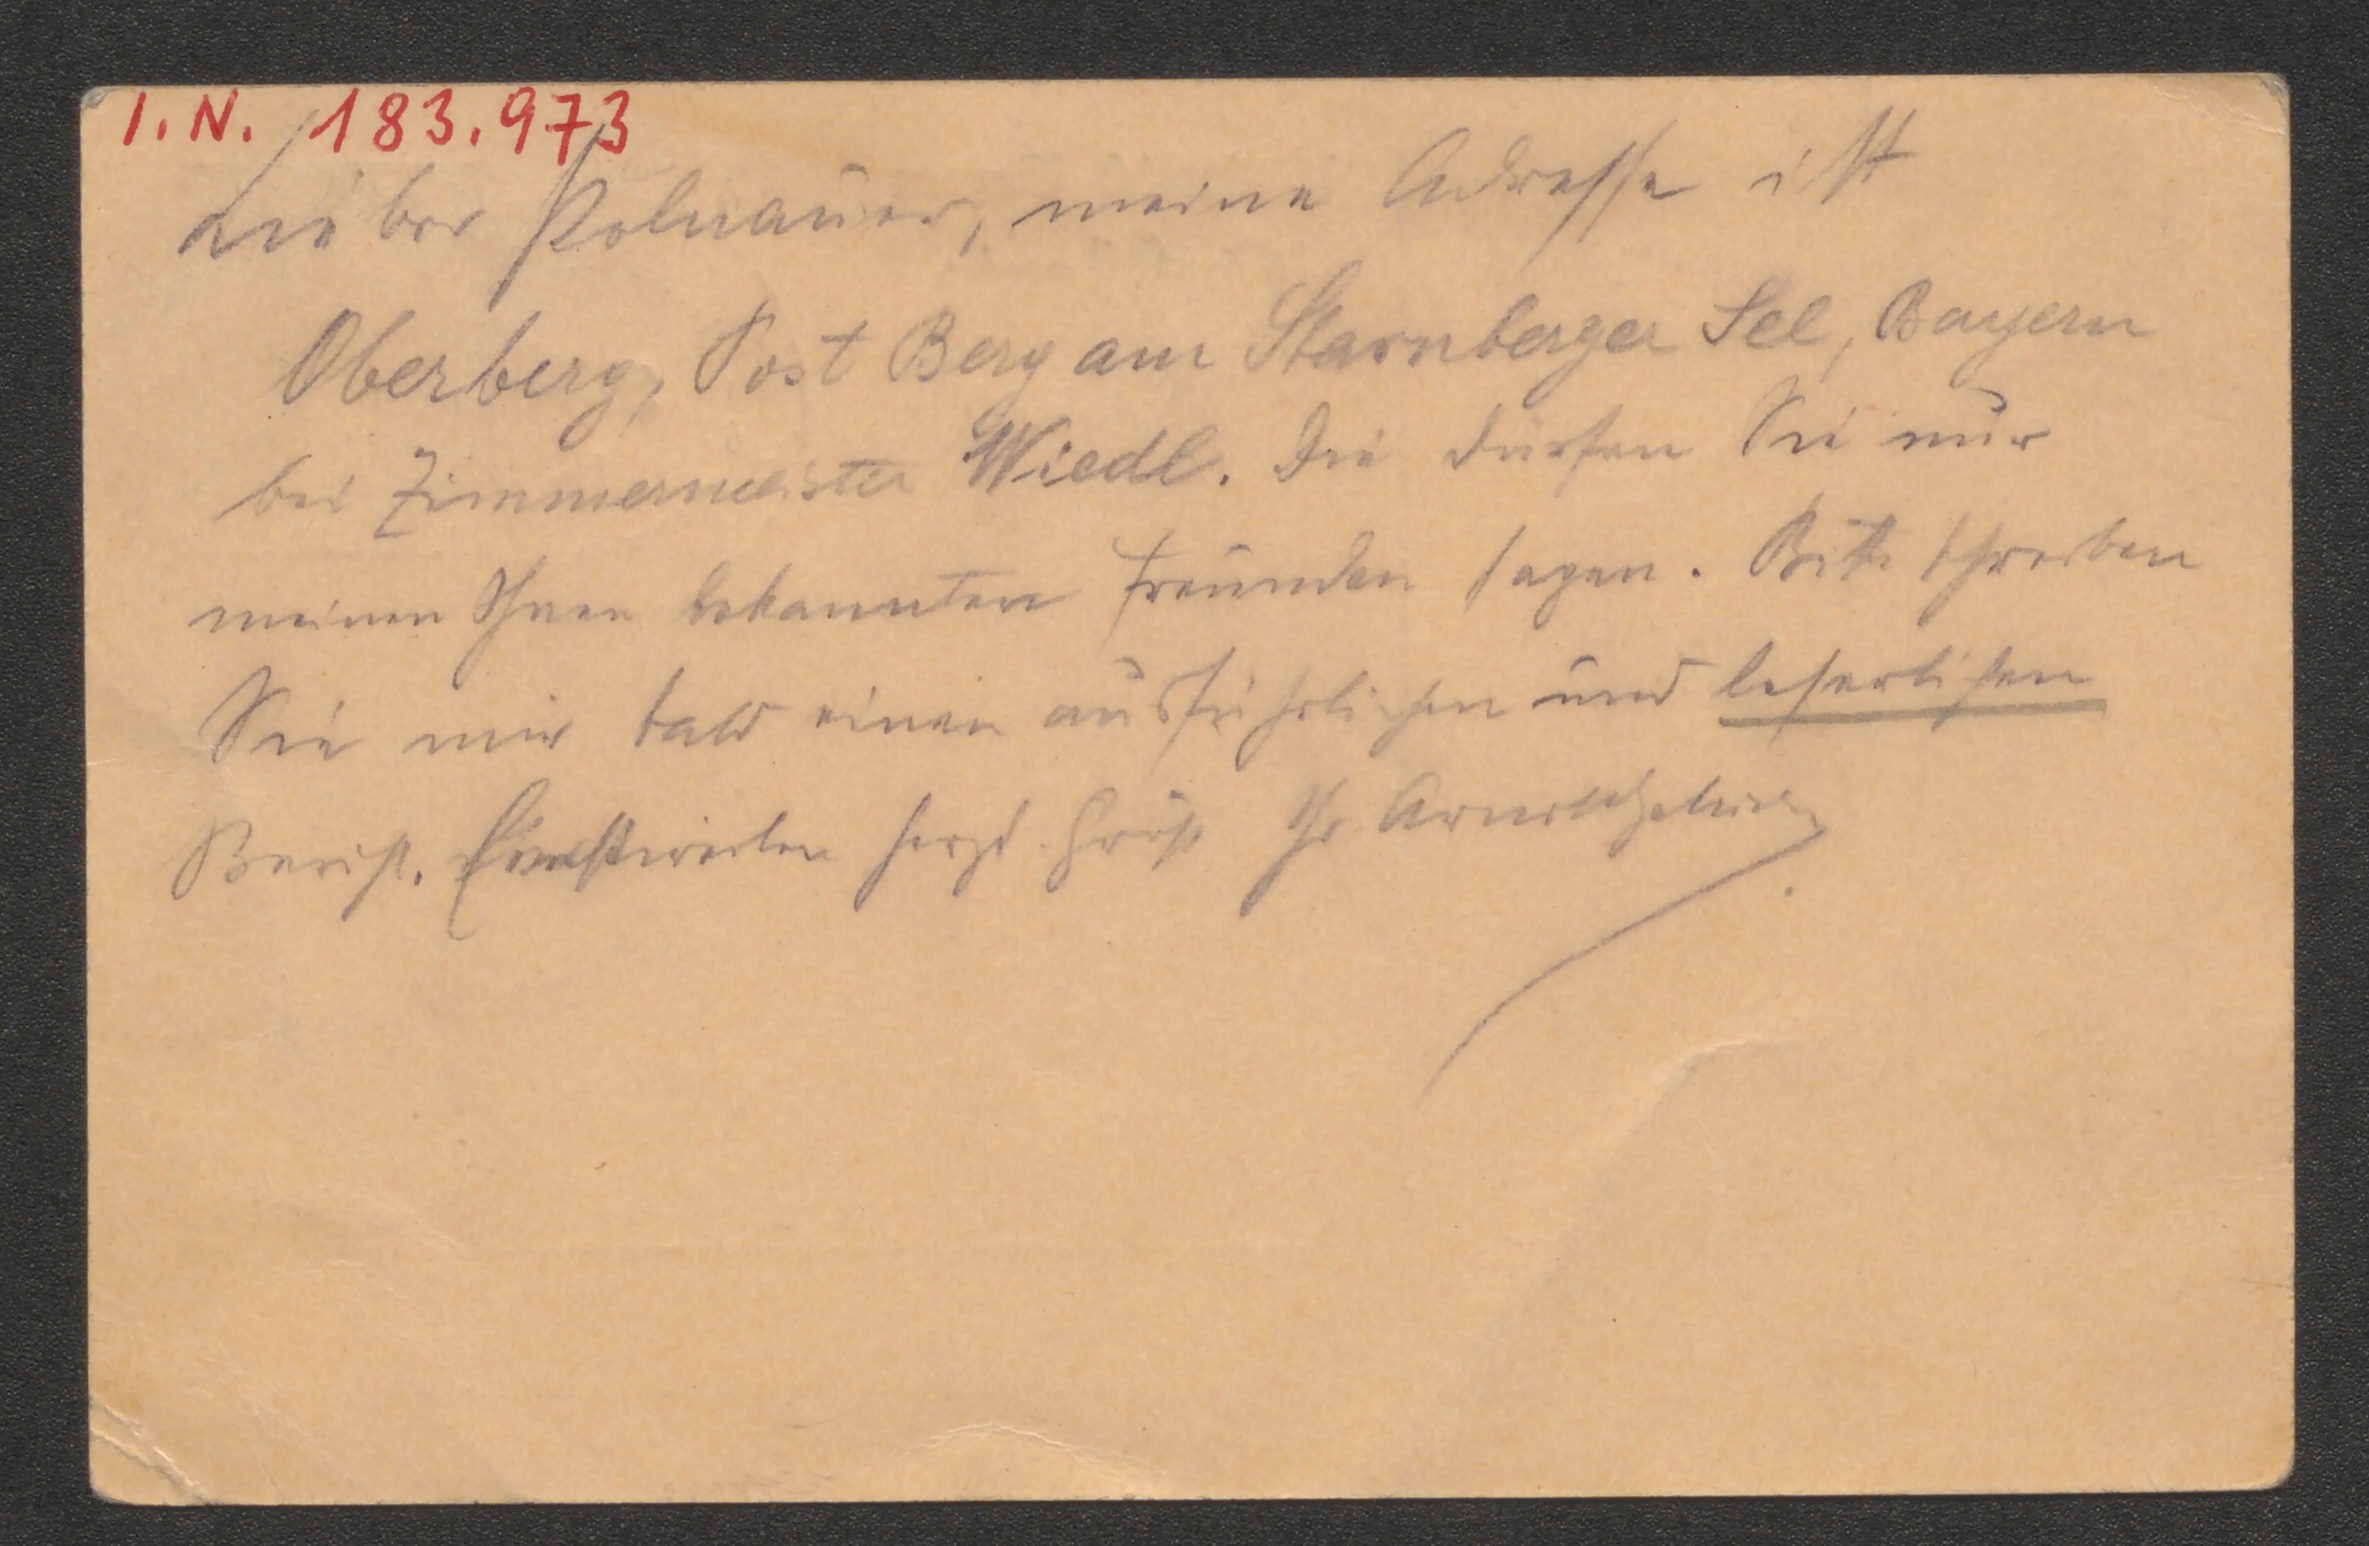 I.N. 183.973
Lieber Polnauer, meine Adresse ist
Oberberg, Post Berg am Starnberger See, Bayern
bei Zimmermeister Wiedl. Die dürfen Sie nur
meinen Ihnen bekannten Freunden sagen. Bitte schreiben
Sie mir bald einen ausführlichen und leserlichen
Bericht. Einstweilen herzl Grüße Ihr Arnold Schönberg